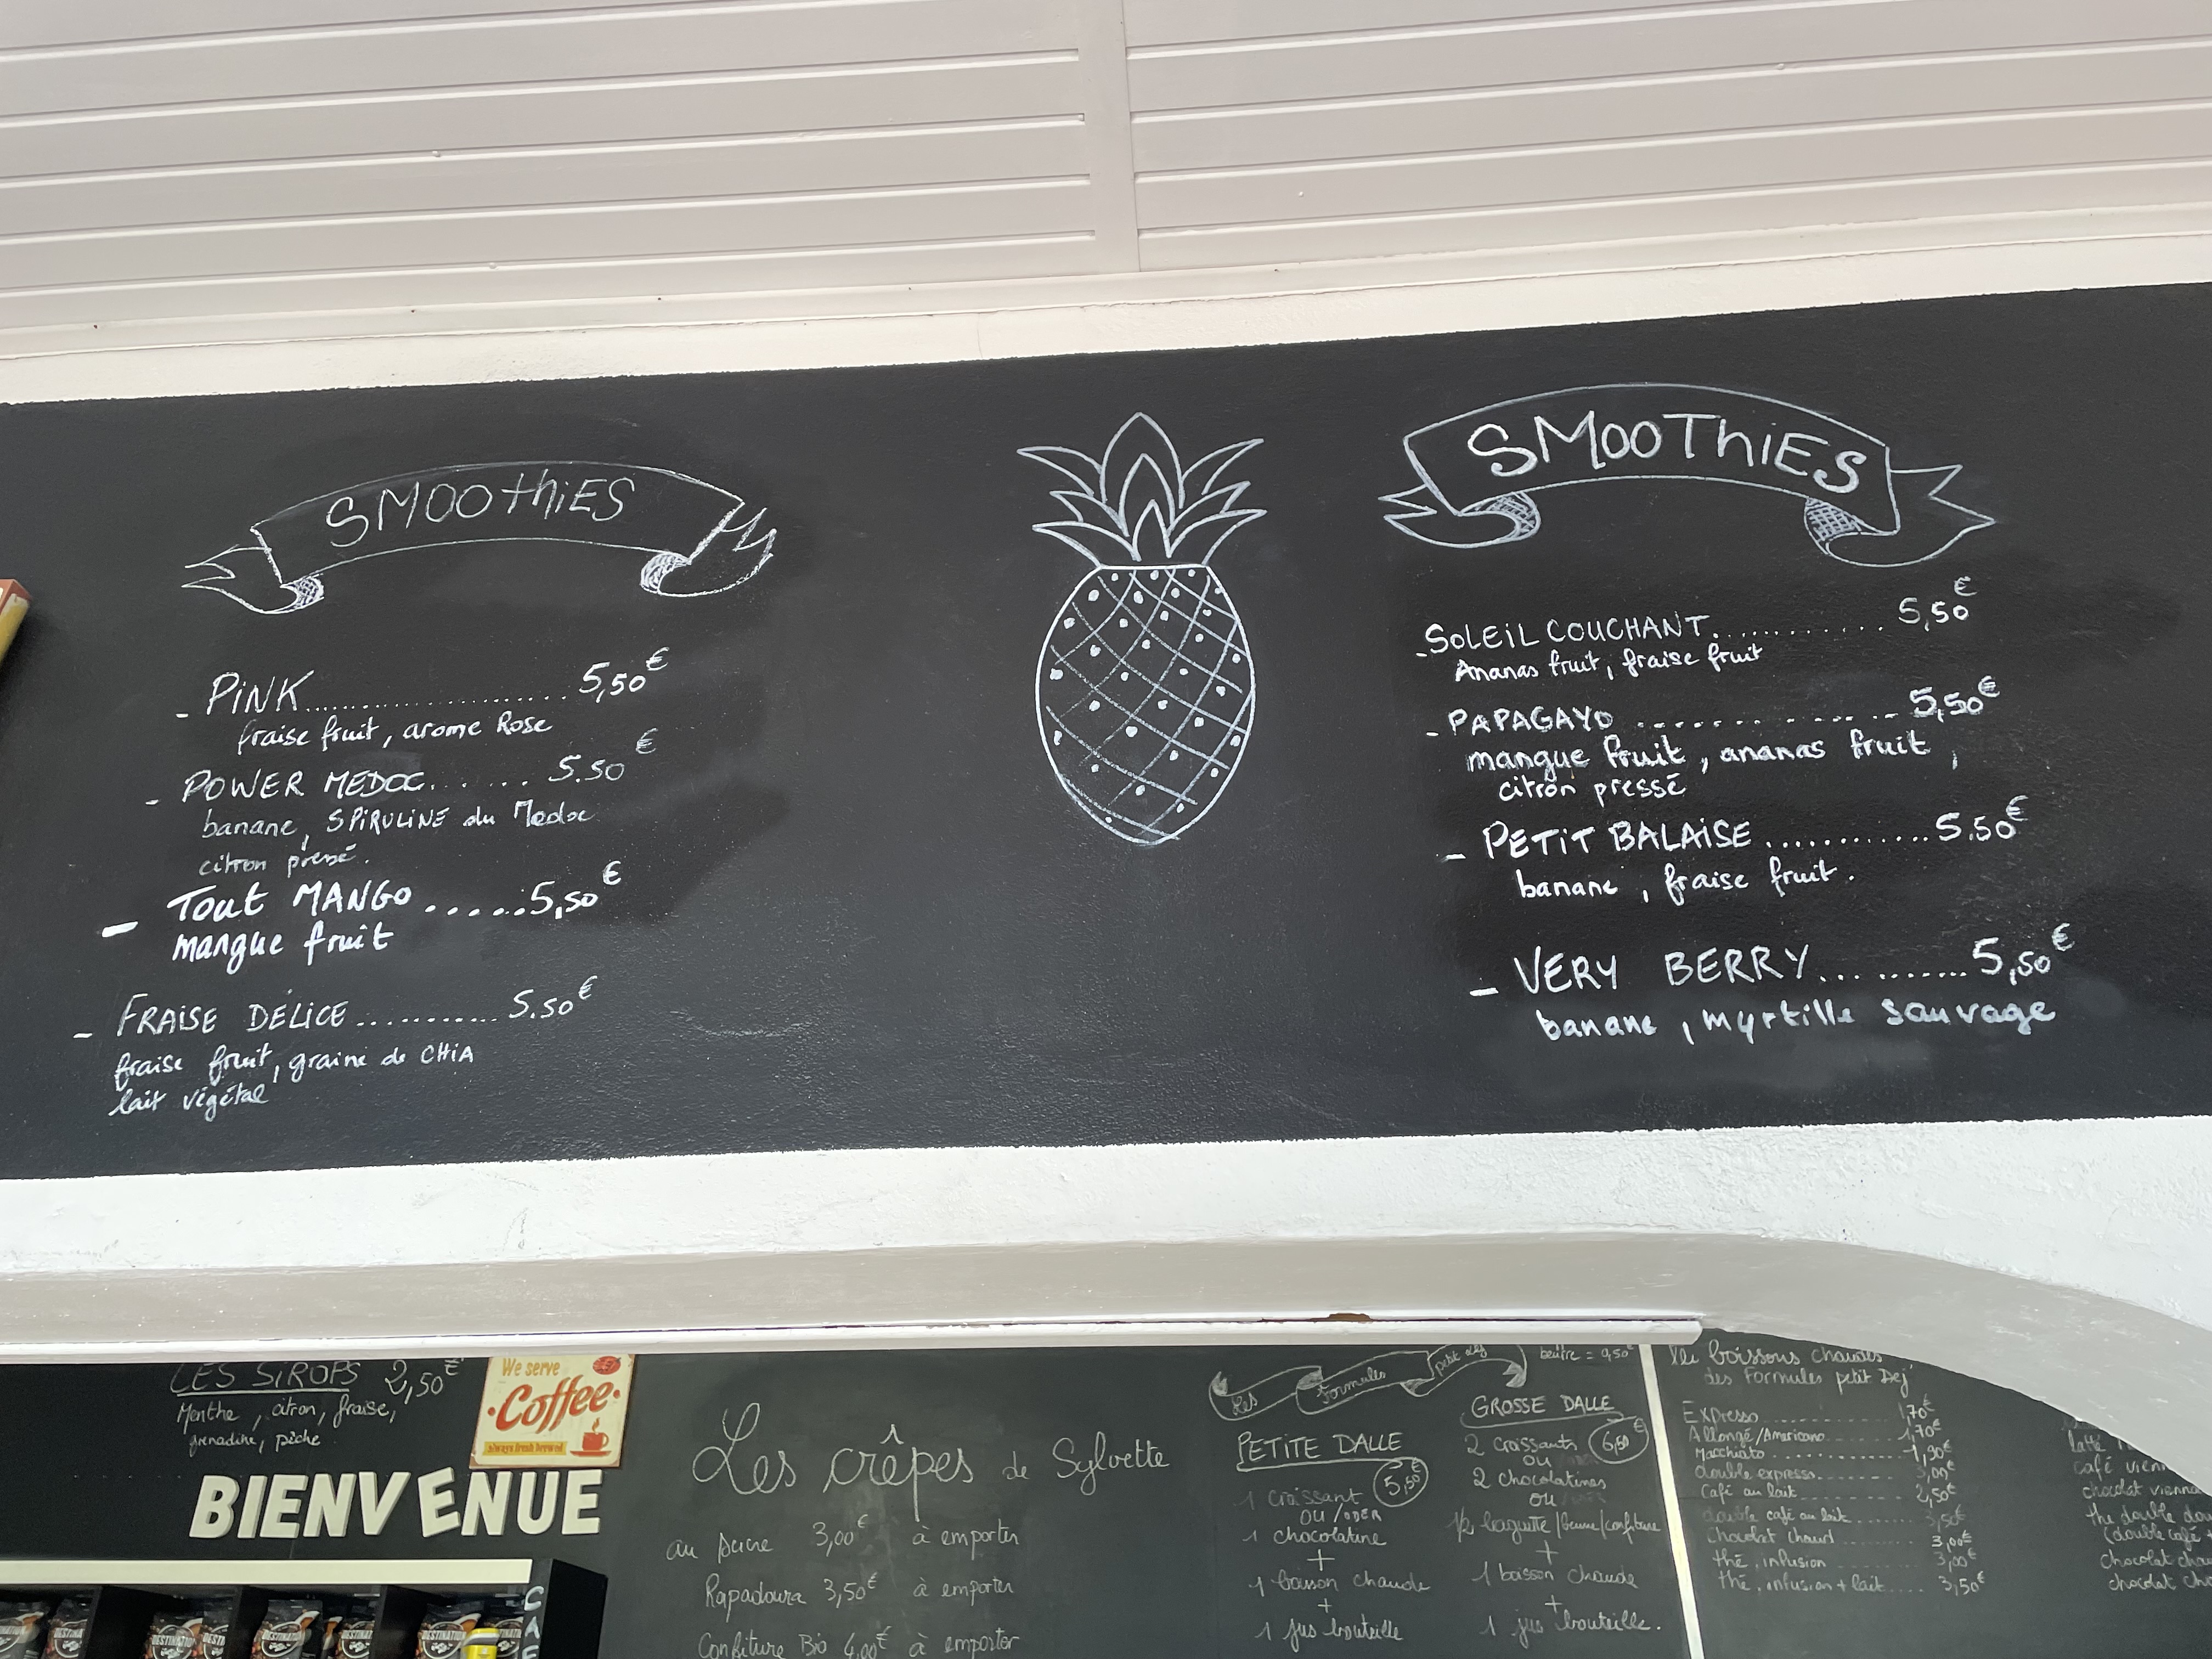 SMOOThiES
- PiNK.................... 5,50€
fraise fruit, arome Rose
- POWER MEDOC....... 5.50€
banane, SPiRULiNE du Medoc
citron pressé.
- Tout MANGO ......5,50€
mangue fruit
- FRAiSE DÉLiCE ............ 5.50€
fraise fruit, graine de CHiA
lait végétal
SMOOThiES
- SOLEiL COUCHANT............ 5,50€
Ananas fruit, fraise fruit
- PAPAGAYO ............ 5,50€
mangue fruit, ananas fruit,
citron pressé
- PETiT BALAiSE ............5.50€
banane, fraise fruit.
- VERY BERRY...........5,50€
banane, myrtille sauvage
LES SiROPS 2,50€
Menthe, citron, fraise,
grenadine, pêche
We serve
Coffee
always fresh brewed
BIENVENUE
DESTINATION
CAF
Les crêpes de Sylvette
au sucre 3,00€ à emporter
Rapadoura 3,50€ à emporter
Confiture Bio 4,00€ à emporter
Les Formules petit dej
PETITE DALLE
5,50€
1 croissant
OU/ODER
1 chocolatine
+
1 boisson chaude
+
1 jus bouteille
GROSSE DALLE
6,50€
2 croissants
ou
2 chocolatines
ou
1/2 baguette/beurre/confiture
+
1 boisson chaude
+
1 jus bouteille.
les boissons chaudes
des Formules petit Dej'
Expresso............ 1,70€
Allongé/Americano........ 1,70€
Macchiato............ 1,90€
double expresso........ 3,00€
Café au lait............ 2,50€
double café au lait........ 3,50€
Chocolat chaud........ 3,00€
thé, infusion........ 3,00€
thé, infusion + lait..... 3,50€